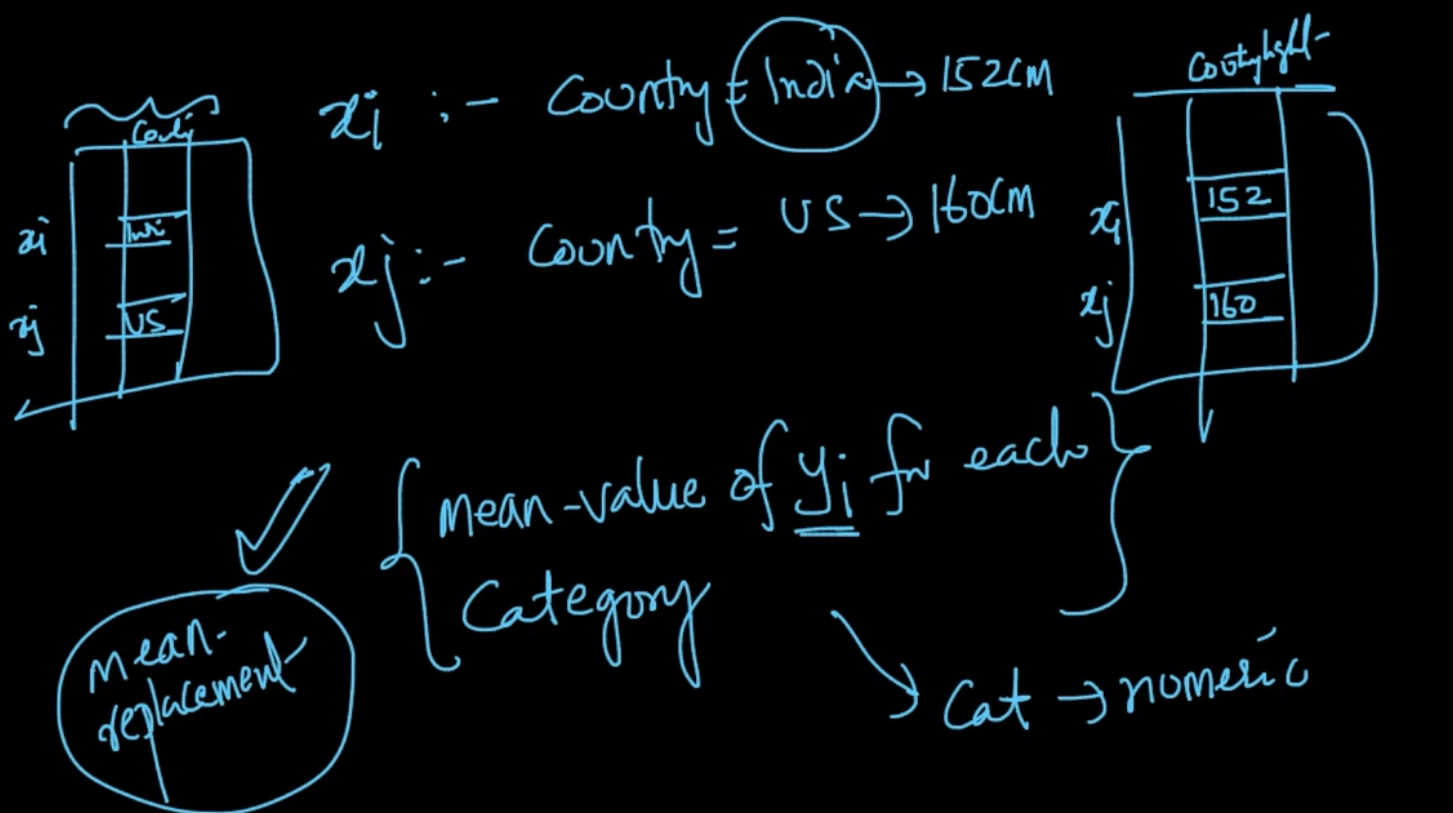 xi :- Country = India → 152CM
xj :- Country = US → 160CM
xi
US
xj
xi 152
xj 160
mean-value of yi for each
Category
mean-
replacement
Cat → numeric